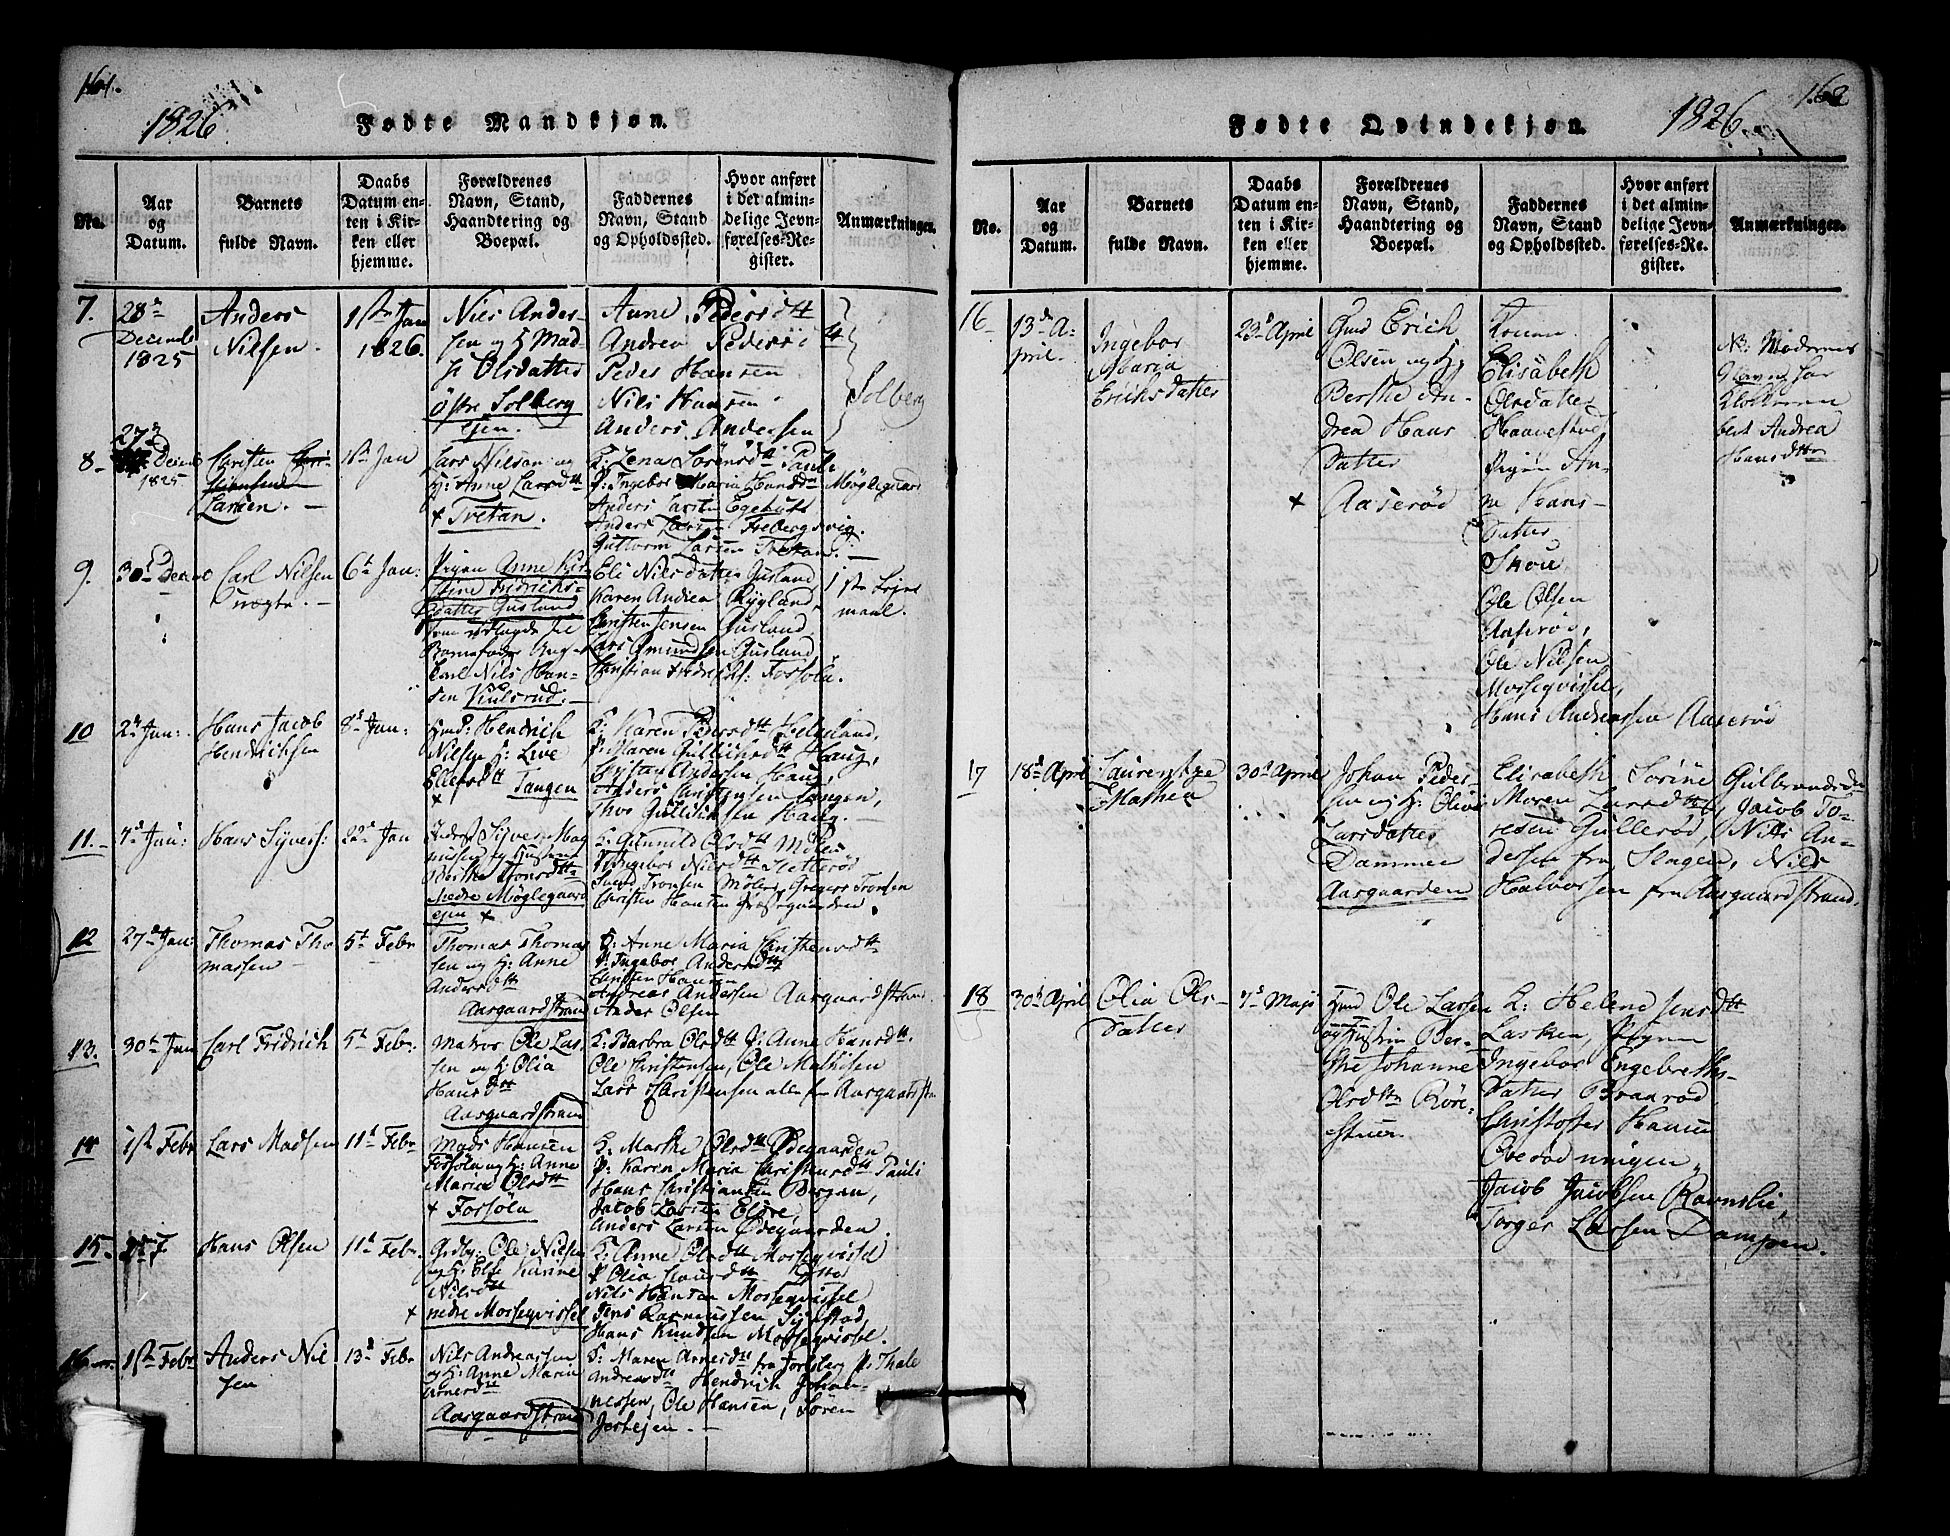 161.
1826
Fødte Mandkjøn.
No.
Aar
og
Datum.
Barnets
fulde Navn.
Daabs
Datum en-
ten i Kir-
ken eller
hjemme.
Forældrenes
Navn, Stand,
Haandtering og
Boepæl.
Faddernes
Navn, Stand
og Opholdssted.
Hvor anført
i det almin-
delige Jevn-
førelses-Re-
gister.
Anmærkninger.
7.
28de
Decemb
1825
Anders
Nielsen.
1ste Jan
1826.
Niels Ander-
sen og H Mad-
Olsdatter
Østre Solberg
ejen.
Anne Pedersdtt
Andrea Pedersd
Peder Hansen
Niels Hansen
Anders Andersen
Solberg
8
27
Decemb
1825
Christen
Larsen.
1ste Jan
Lars Nilsen og
H: Anne Larsdtt
+ Tvetan.
K: Lena Sørensdtt Pauli
P: Ingebor Maria Hansdtt Møglegaard
Anders Larsen Egebutt
Anders Larsen Frebergsvig.
Guttorm Larsen Tvetan.
9.
30d Decem
Carl Nilsen
uægte.
6d Jan:
Pigen Anne Kir-
stine Fridrichs-
datter Gusland
som udlagde til
Barnefader Ung-
karl Nils Han-
sen Kulsrud.
Eli Nilsdatter Gusland
Karen Andrea Rygland
Christen Jensen Gusland
Lars Amundsen Gusland
Christian Fredrichs: Fossøla.
1ste Lejer
maal.
10
2d Jan:
Hans Jacob
Hendrichsen
8d Jan:
Huusd: Hendrich
Nilsen H: Live
Ellefsdtt Tangen
+
K: Karen Persdtt Helgeland,
P: Maren Gullichsdtt Haug,
Christen Andersen Haug,
Anders Christensen Tangen,
Thor Gullichsen Haug.
11.
7d Jan:
Hans Syvers:
22d Jan
Syver Mag
nussen og Hustru
Berthe Hansdtt
Nedre Møglegaard
ejen +
K: Gunild Olsdtt Mølen
P: Ingebor Nilsdtt Sletterød
Svend Tronsen Mølen, Gregers Tronsen
Christen Hansen Præstegaarden.
12
27d Jan:
Thomas Tho
massen
5t Febr
Thomas Thomas
sen og H: Anne
Andersdtt
Aasgaardstrand
K: Anne Maria Christensdtt
P: Ingebor Andersdtt
Christen Hansen
Andreas Andersen Aasgaardstrand.
Ander Olsen
13.
30te Jan
Carl Fridrich
5t Febr:
Matros Ole Lar-
sen og H: Olia
Hansdtt
Aasgaardstrand
K: Barbra Olsdtt P: Anne Hansdtt.
Ole Christensen, Ole Mathisen
Lars Christensen alle fra Aasgaardstra
14
1ste Febr
Lars Madsen
11t Febr
Mads Hansen
Fossøla og H: Anne
Maria Olsdtt
+ Fossøla
K: Marthe Olsdtt Ødegaarden
P: Karen Maria Christensdtt Pauli
Hans Christiansen Borgan,
Jacob Larsen Eldre,
Anders Larsen Ødegaarden.
15.
Hans Olsen
11t Febr.
Grdbr: Ole Nilsen
og H: Else Karine
Nilsdtt
+ nedre Mosseqvissel
K: Anne Olsdtt Mosseqvissel
P Olia Hansdtt
Nils Hansen Mosseqvissel
Jens Rasmussen
Hans Knudsen Mosseqvissel.
16
1ste Febr
Anders Nil
sen
13d Febr
Nils Andreassen
og H: Anne Maria
Arnesdtt
Aasgaardstrand
K: Maren Arnesdtt fra Jarlsberg P: Thale
Andreasdtt Hendrich Johan-
nessen, Ole Hansen, Søren
162
1826
Fødte Qvindekjøn.
No.
Aar
og
Datum.
Barnets
fulde Navn.
Daabs
Datum en-
ten i Kir-
ken eller
hjemme.
Forældrenes
Navn, Stand,
Haandtering og
Boepæl.
Faddernes
Navn, Stand
og Opholdssted.
Hvor anført
i det almin-
delige Jevn-
førelses-Re-
gister.
Anmærkninger.
16
13de A-
pril.
Ingebor
Maria
Erichsdatter
23d April
Erich
Olsen og H:
Berthe An-
drea Hans
Datter
+ Aaserød
Konen
Elisabeth
Olsdatter
Haavestad
Pigen An-
ne Hans-
datter
Skou
Ole Olsen
Aaserød,
Ole Nilsen
Mosseqvissel,
Hans Andreassen Aaserød
NB: Moderens
Navn har
Klokkeren
bert Andrea
Hansdtt
17
18d April
Laurentze
Mathea
30d April
Johan Peder-
sen og H: Olive
Larsdatter
Dammen
Aasgaarden
Elisabeth Sorine Gulbrandsda
Maren Larsdtt, Jacob To-
resen Gullerød, Nils An-
dersen fra Slagen, Niels
Halvorsen fra Aasgaardstrand.
18
30d April
Olia Ols-
datter
7d Maji
Huusd Ole Larsen
og Hustru Ber-
the Johanne
Olsdtt Røre-
stuen
K: Helene Jensdtt
Lasken, Pigen
Ingebor Engebreths-
datter Braarød
Christoffer Hansen
Oberødningen,
Jacob Jacobsen Ravnslie,
Torger Larsen Dampen.